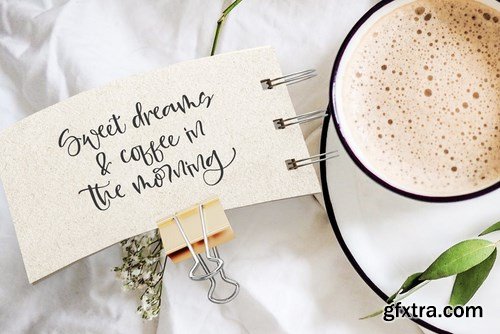 Sweet dreams
& coffee in
the morning
gfxtra.com